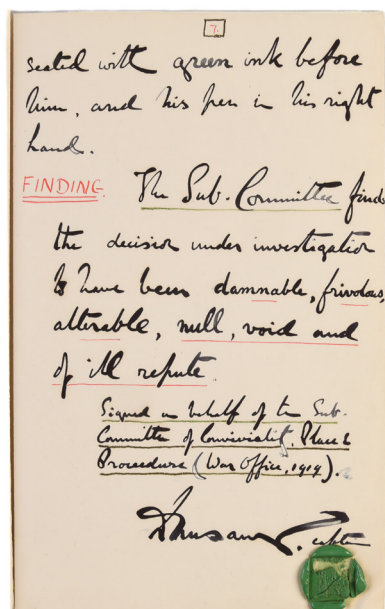 7.
seated with green ink before
him, and his pen in his right
hand.
FINDING. The Sub-Committee finds
the decision under investigation
to have been damnable, frivolous,
alterable, null, void and
of ill repute.
Signed on behalf of the Sub-
Committee of Conviviality, Place &
Procedure (War Office, 1919).